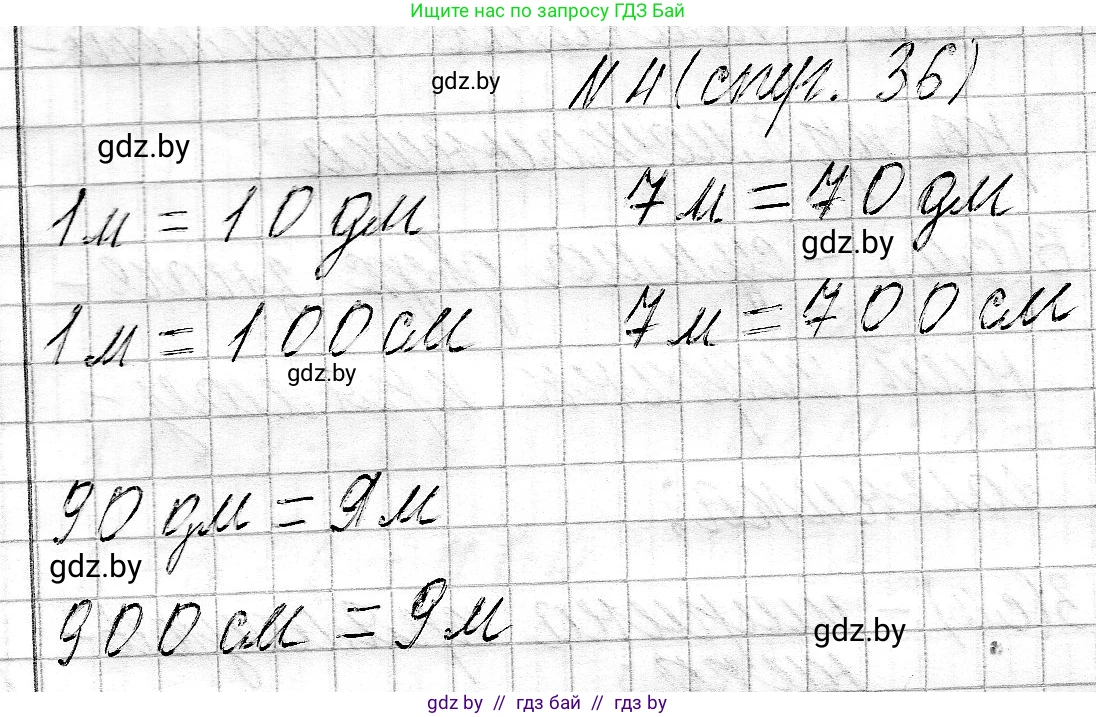 Ищите нас по запросу ГДЗ Бай
gdz.by
N 4 (стр. 36)
gdz.by
1 м = 10 дм 7 м = 70 дм
gdz.by
1 м = 100 см 7 м = 700 см
gdz.by
90 дм = 9 м
gdz.by
900 см = 9 м
gdz.by
gdz.by // гдз бай // гдз by